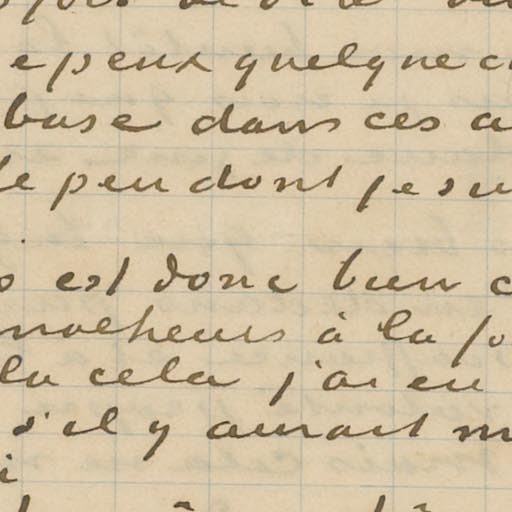 e peux quelque c
base dans ces a
le peu dont je su
s est donc bien c
malheurs à la fo
la cela j'ai eu
s'il y aurait m
i